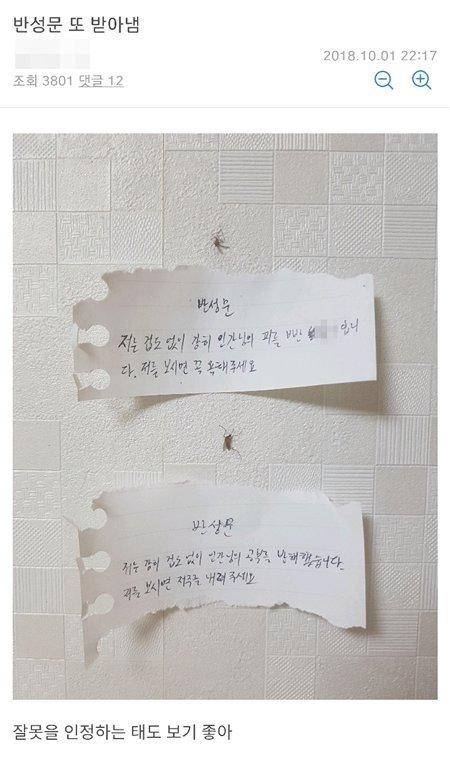 반성문 또 받아냄
2018.10.01 22:17
조회 3801 댓글 12
반성문
저는 겁도 없이 감히 인간님의 피를 빠반 입니
다. 저를 보시면 꼭 욕해주세요
반성문
저는 감히 겁도 없이 인간님의 공부를 방해했습니다.
저를 보시면 저주를 내려주세요
잘못을 인정하는 태도 보기 좋아